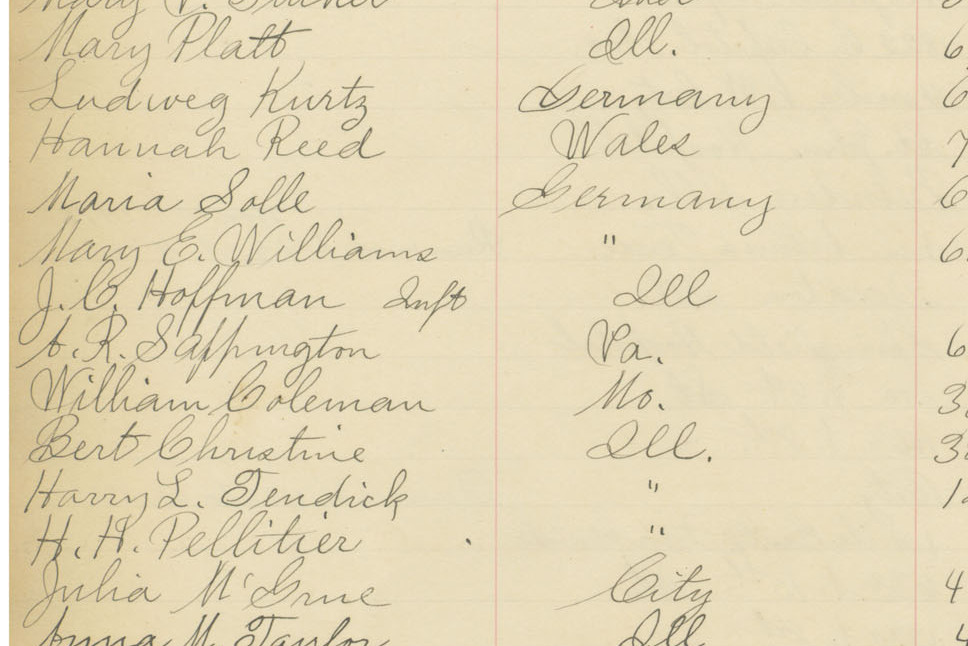 Mary Platt Ill. 6
Ludweg Kurtz Germany 6
Hannah Reed Wales 7
Maria Solle Germany 6
Mary E. Williams " 6
J. C. Hoffman Inft Ill
A. R. Sappington Va. 6
William Coleman Mo. 3
Bert Christine Ill. 3
Harry L. Tendick " 1
H. H. Pellitier "
Julia McGrue City 4
Anna M. Taylor Ill 4